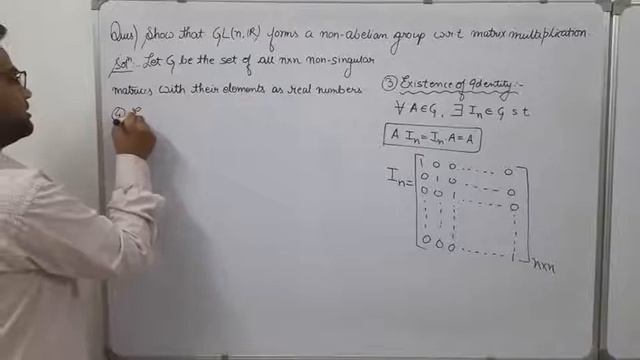 Ques) Show that GL(n, IR) forms a non-abelian group w.r.t matrix multiplication.
Solⁿ:- Let G be the set of all n×n non-singular
matrices with their elements as real numbers
④
③ Existence of Identity:-
∀ A∈G, ∃ Iₙ∈G s t
A Iₙ = Iₙ A = A
Iₙ =
1 0 0 ..... 0
0 1 0 - - - . 0
0 0 1 - - - . 0
0 0 0 - - - . 1
n×n